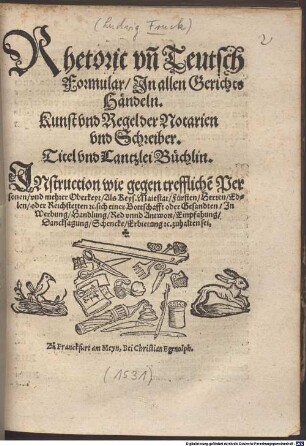 (Ludwig Fruck)
2
Rhetoric vñ Teutsch
Formular/ In allen Gerichts
Händeln.
Kunst vnd Regel der Notarien
vnd Schreiber.
Titel vnd Cantzlei Büchlin.
INstruction wie gegen trefflichẽ Per
sonen/ vnd mehrer Oberkeyt/ Als Keys. Maiestat/ Fürsten/ Herren/ Ed-
len/ oder Reichstetten ꝛc. sich eines Bottschafft oder Gesandten/ In
Werbung/ Handlung/ Red vnnd Antwort/ Empfahung/
Dancksagung/ Schencke/ Erbietung ꝛc. zuhalten sei.
Zů Franckfurt am Meyn, Bei Christian Egenolph.
(1531)